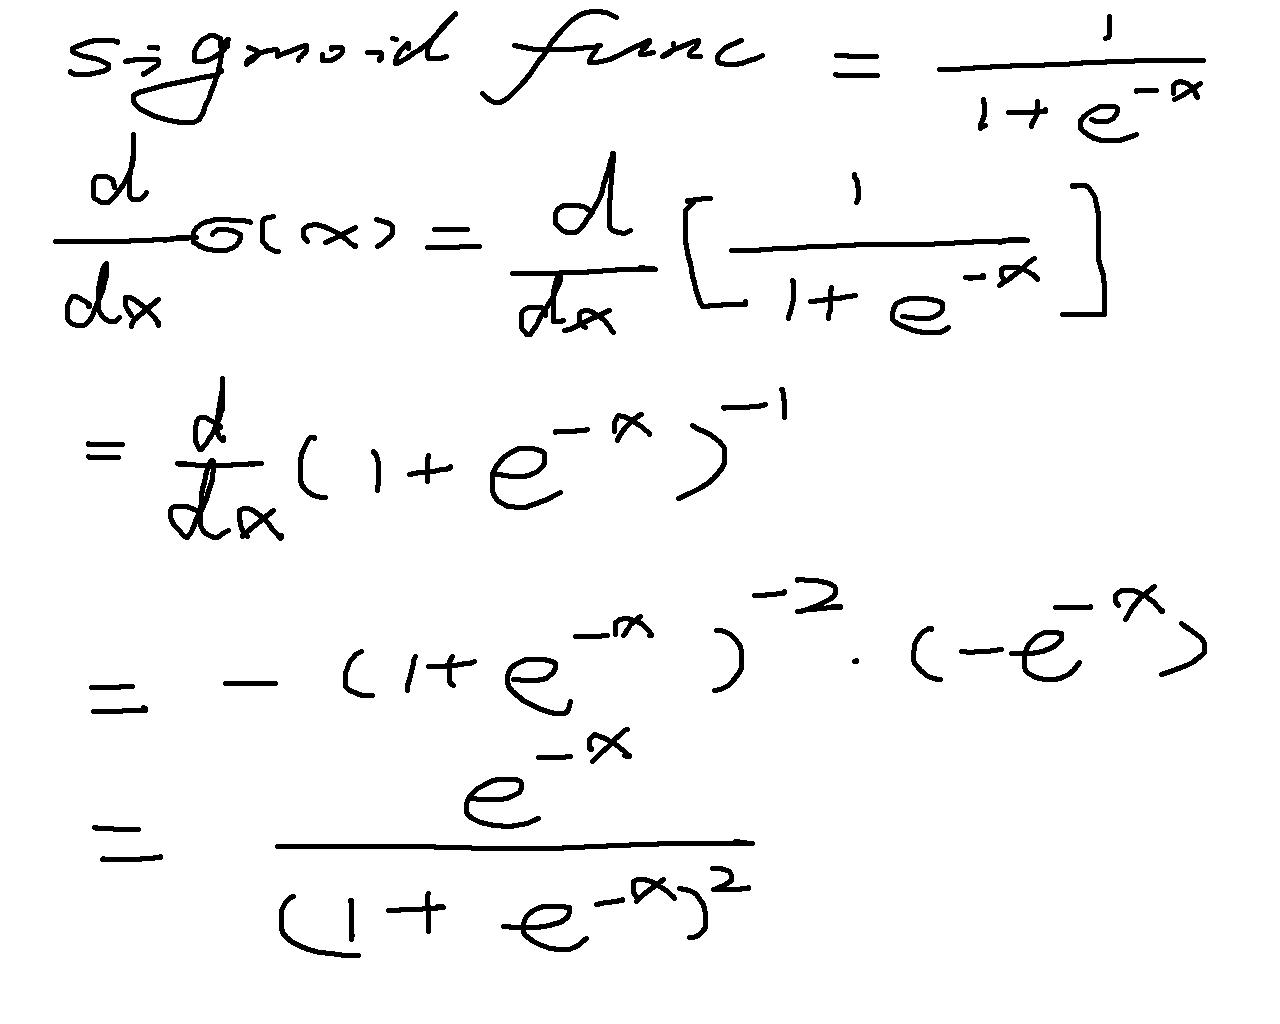 sigmoid func = 1/(1 + e^-x)
d/dx σ(x) = d/dx [1/(1 + e^-x)]
= d/dx (1 + e^-x)^-1
= - (1 + e^-x)^-2 · (-e^-x)
= e^-x/(1 + e^-x)^2